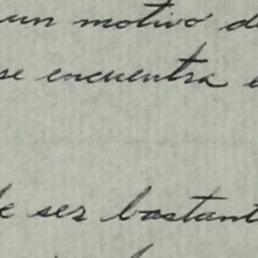 un motivo de
se encuentra
de ser bastant